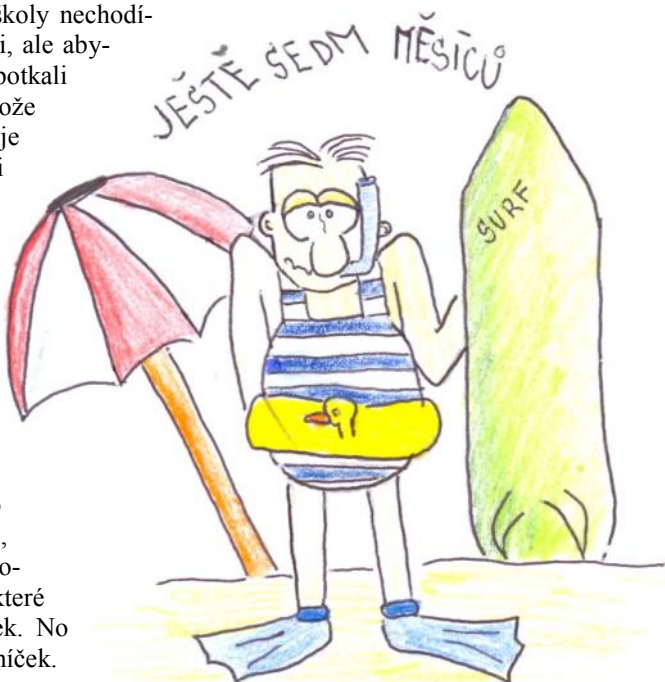 školy nechodí-
i, ale aby-
potkali
ože
je
i
JEŠTĚ SEDM MĚSÍCŮ
SURF
,
o-
které
ek. No
níček.